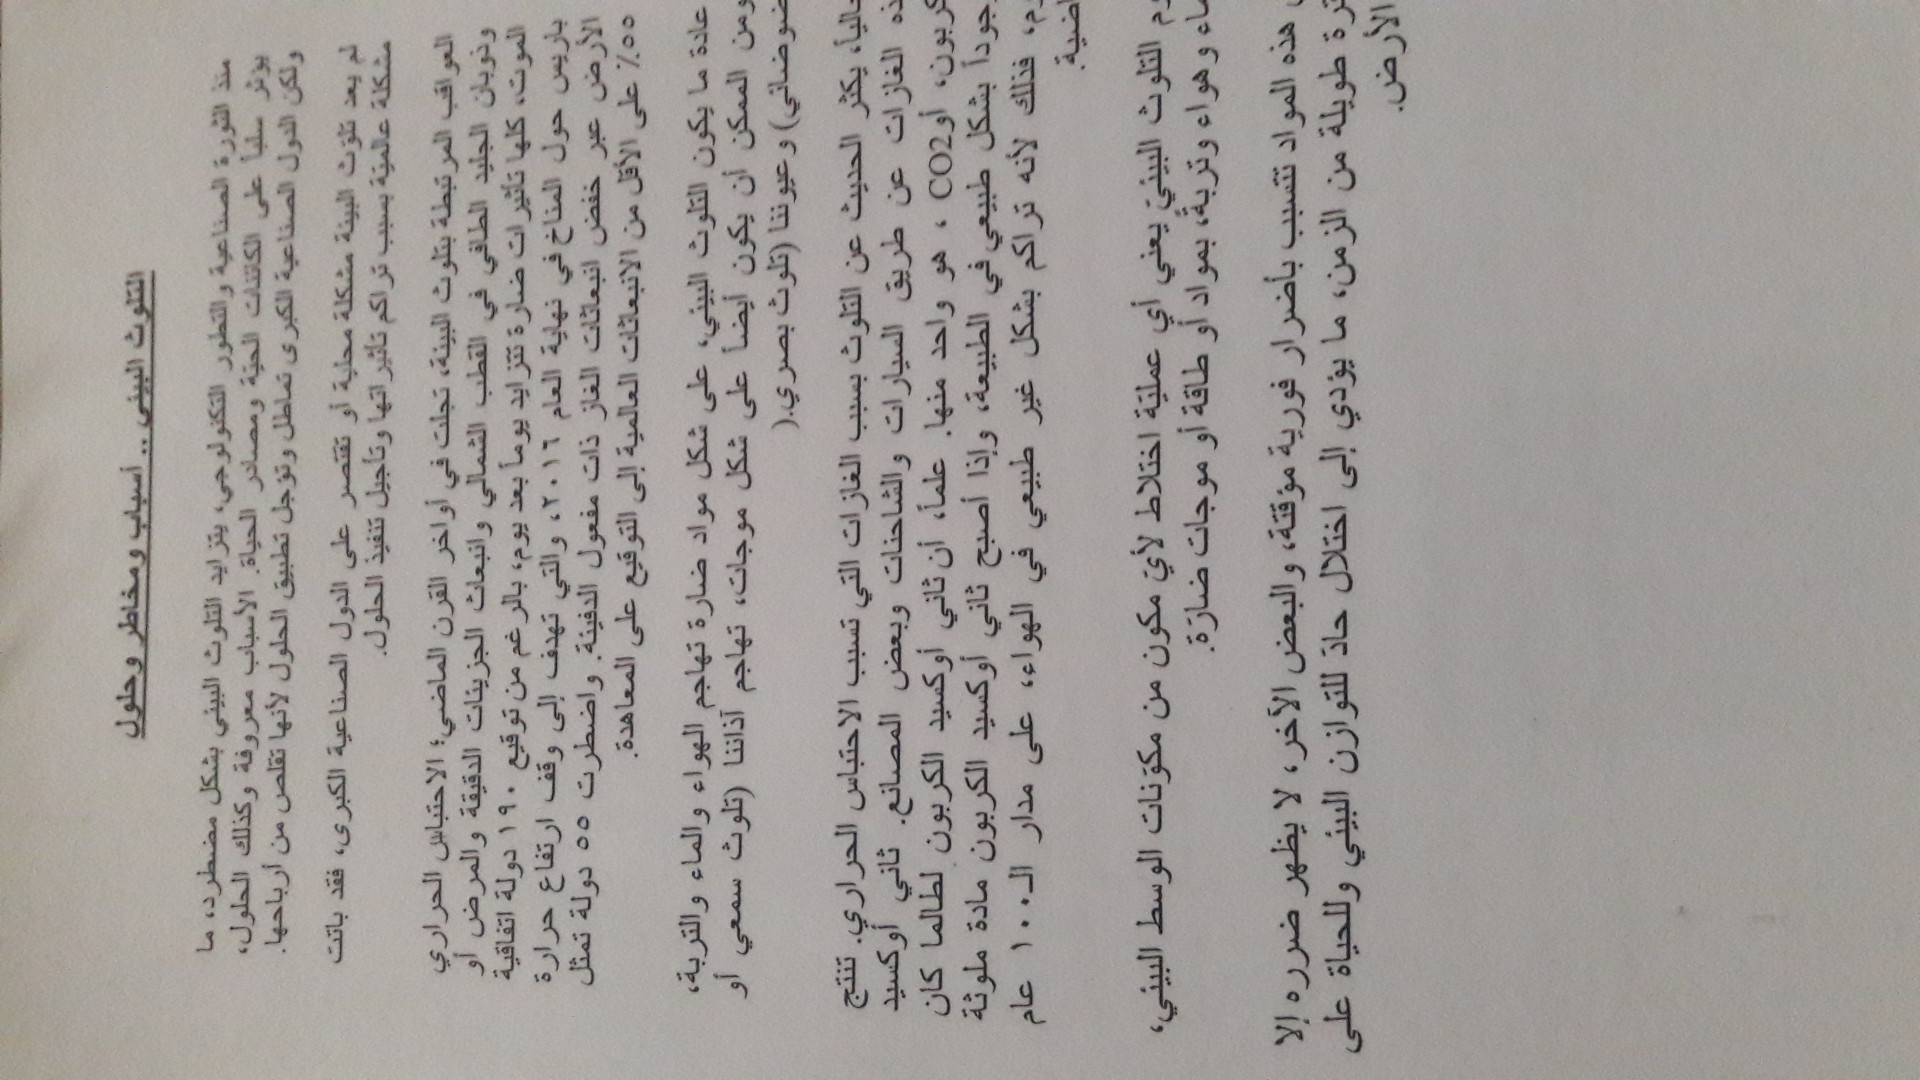 التلوث البيئي .. أسباب ومخاطر وحلول
منذ الثورة الصناعية والتطور التكنولوجي، يتزايد التلوث البيئي بشكل مضطرد، ما
يؤثر سلباً على الكائنات الحيّة ومصادر الحياة. الأسباب معروفة وكذلك الحلول،
ولكن الدول الصناعية الكبرى تماطل وتؤجل تطبيق الحلول لأنها تقلص من أرباحها.
لم يعد تلوّث البيئة مشكلة محلية أو تقتصر على الدول الصناعية الكبرى، فقد باتت
مشكلة عالميّة بسبب تراكم تأثيراتها وتأجيل تنفيذ الحلول.
العواقب المرتبطة بتلوث البيئة، تجلت في أواخر القرن الماضي؛ الاحتباس الحراري
وذوبان الجليد الطافي في القطب الشمالي وانبعاث الجزيئات الدقيقة والمرض أو
الموت، كلها تأثيرات ضارة تتزايد يوماً بعد يوم، بالرغم من توقيع ١٩٠ دولة اتفاقية
باريس حول المناخ في نهاية العام ٢٠١٦، والتي تهدف إلى وقف ارتفاع حرارة
الأرض عبر خفض انبعاثات الغاز ذات مفعول الدفيئة. واضطرت ٥٥ دولة تمثل
٥٥٪ على الأقل من الانبعاثات العالمية إلى التوقيع على المعاهدة.
عادة ما يكون التلوث البيئي، على شكل مواد ضارة تهاجم الهواء والماء والتربة،
ومن الممكن أن يكون أيضاً على شكل موجات، تهاجم آذاننا (تلوث سمعي أو
ضوضائي) وعيوننا (تلوث بصري.(
حالياً، يكثر الحديث عن التلوث بسبب الغازات التي تسبب الاحتباس الحراري. تنتج
هذه الغازات عن طريق السيارات والشاحنات وبعض المصانع. ثاني أوكسيد
الكربون، أوCO2 ، هو واحد منها. علماً، أن ثاني أوكسيد الكربون لطالما كان
موجوداً بشكل طبيعي في الطبيعة، وإذا أصبح ثاني أوكسيد الكربون مادة ملوثة
فذلك لأنه تراكم بشكل غير طبيعي في الهواء، على مدار الـ١٠٠ عام
التلوث البيئيّ يعني أي عمليّة اختلاط لأيّ مكون من مكوّنات الوسط البيئي،
وهواء وتربةً، بمواد أو طاقة أو موجات ضارّة.
هذه المواد تتسبب بأضرار فورية مؤقتة، والبعض الآخر، لا يظهر ضرره إلا
طويلة من الزمن، ما يؤدي إلى اختلال حادّ للتوازن البيئي وللحياة على
الأرض.